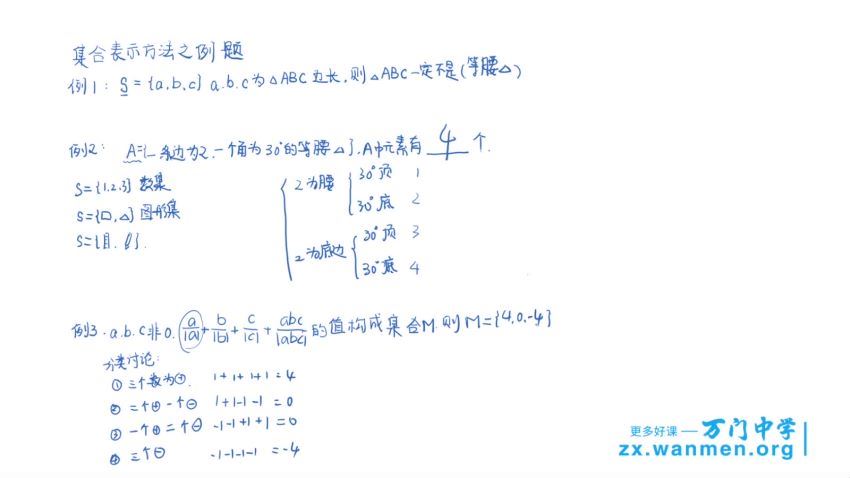 集合表示方法之例题
例1: S={a,b,c} a.b.c为△ABC边长,则△ABC一定不是(等腰△)
例2: A={一条边为2,一个角为30°的等腰△},A中元素有 4 个.
S={1,2,3} 数集
S={□,△} 图形集
2为腰 30°顶 1
30°底 2
2为底边 30°顶 3
30°底 4
例3.a.b.c非0. a/|a|+b/|b|+c/|c|+abc/|abc|的值构成集合M.则M={4,0,-4}
分类讨论:
① 三个数为⊕. 1+1+1+1=4
② 二个⊕一个⊖ 1+1-1-1=0
③ 一个⊕二个⊖ -1-1+1+1=0
④ 三个⊖ -1-1-1-1=-4
更多好课 — 万门中学
zx.wanmen.org